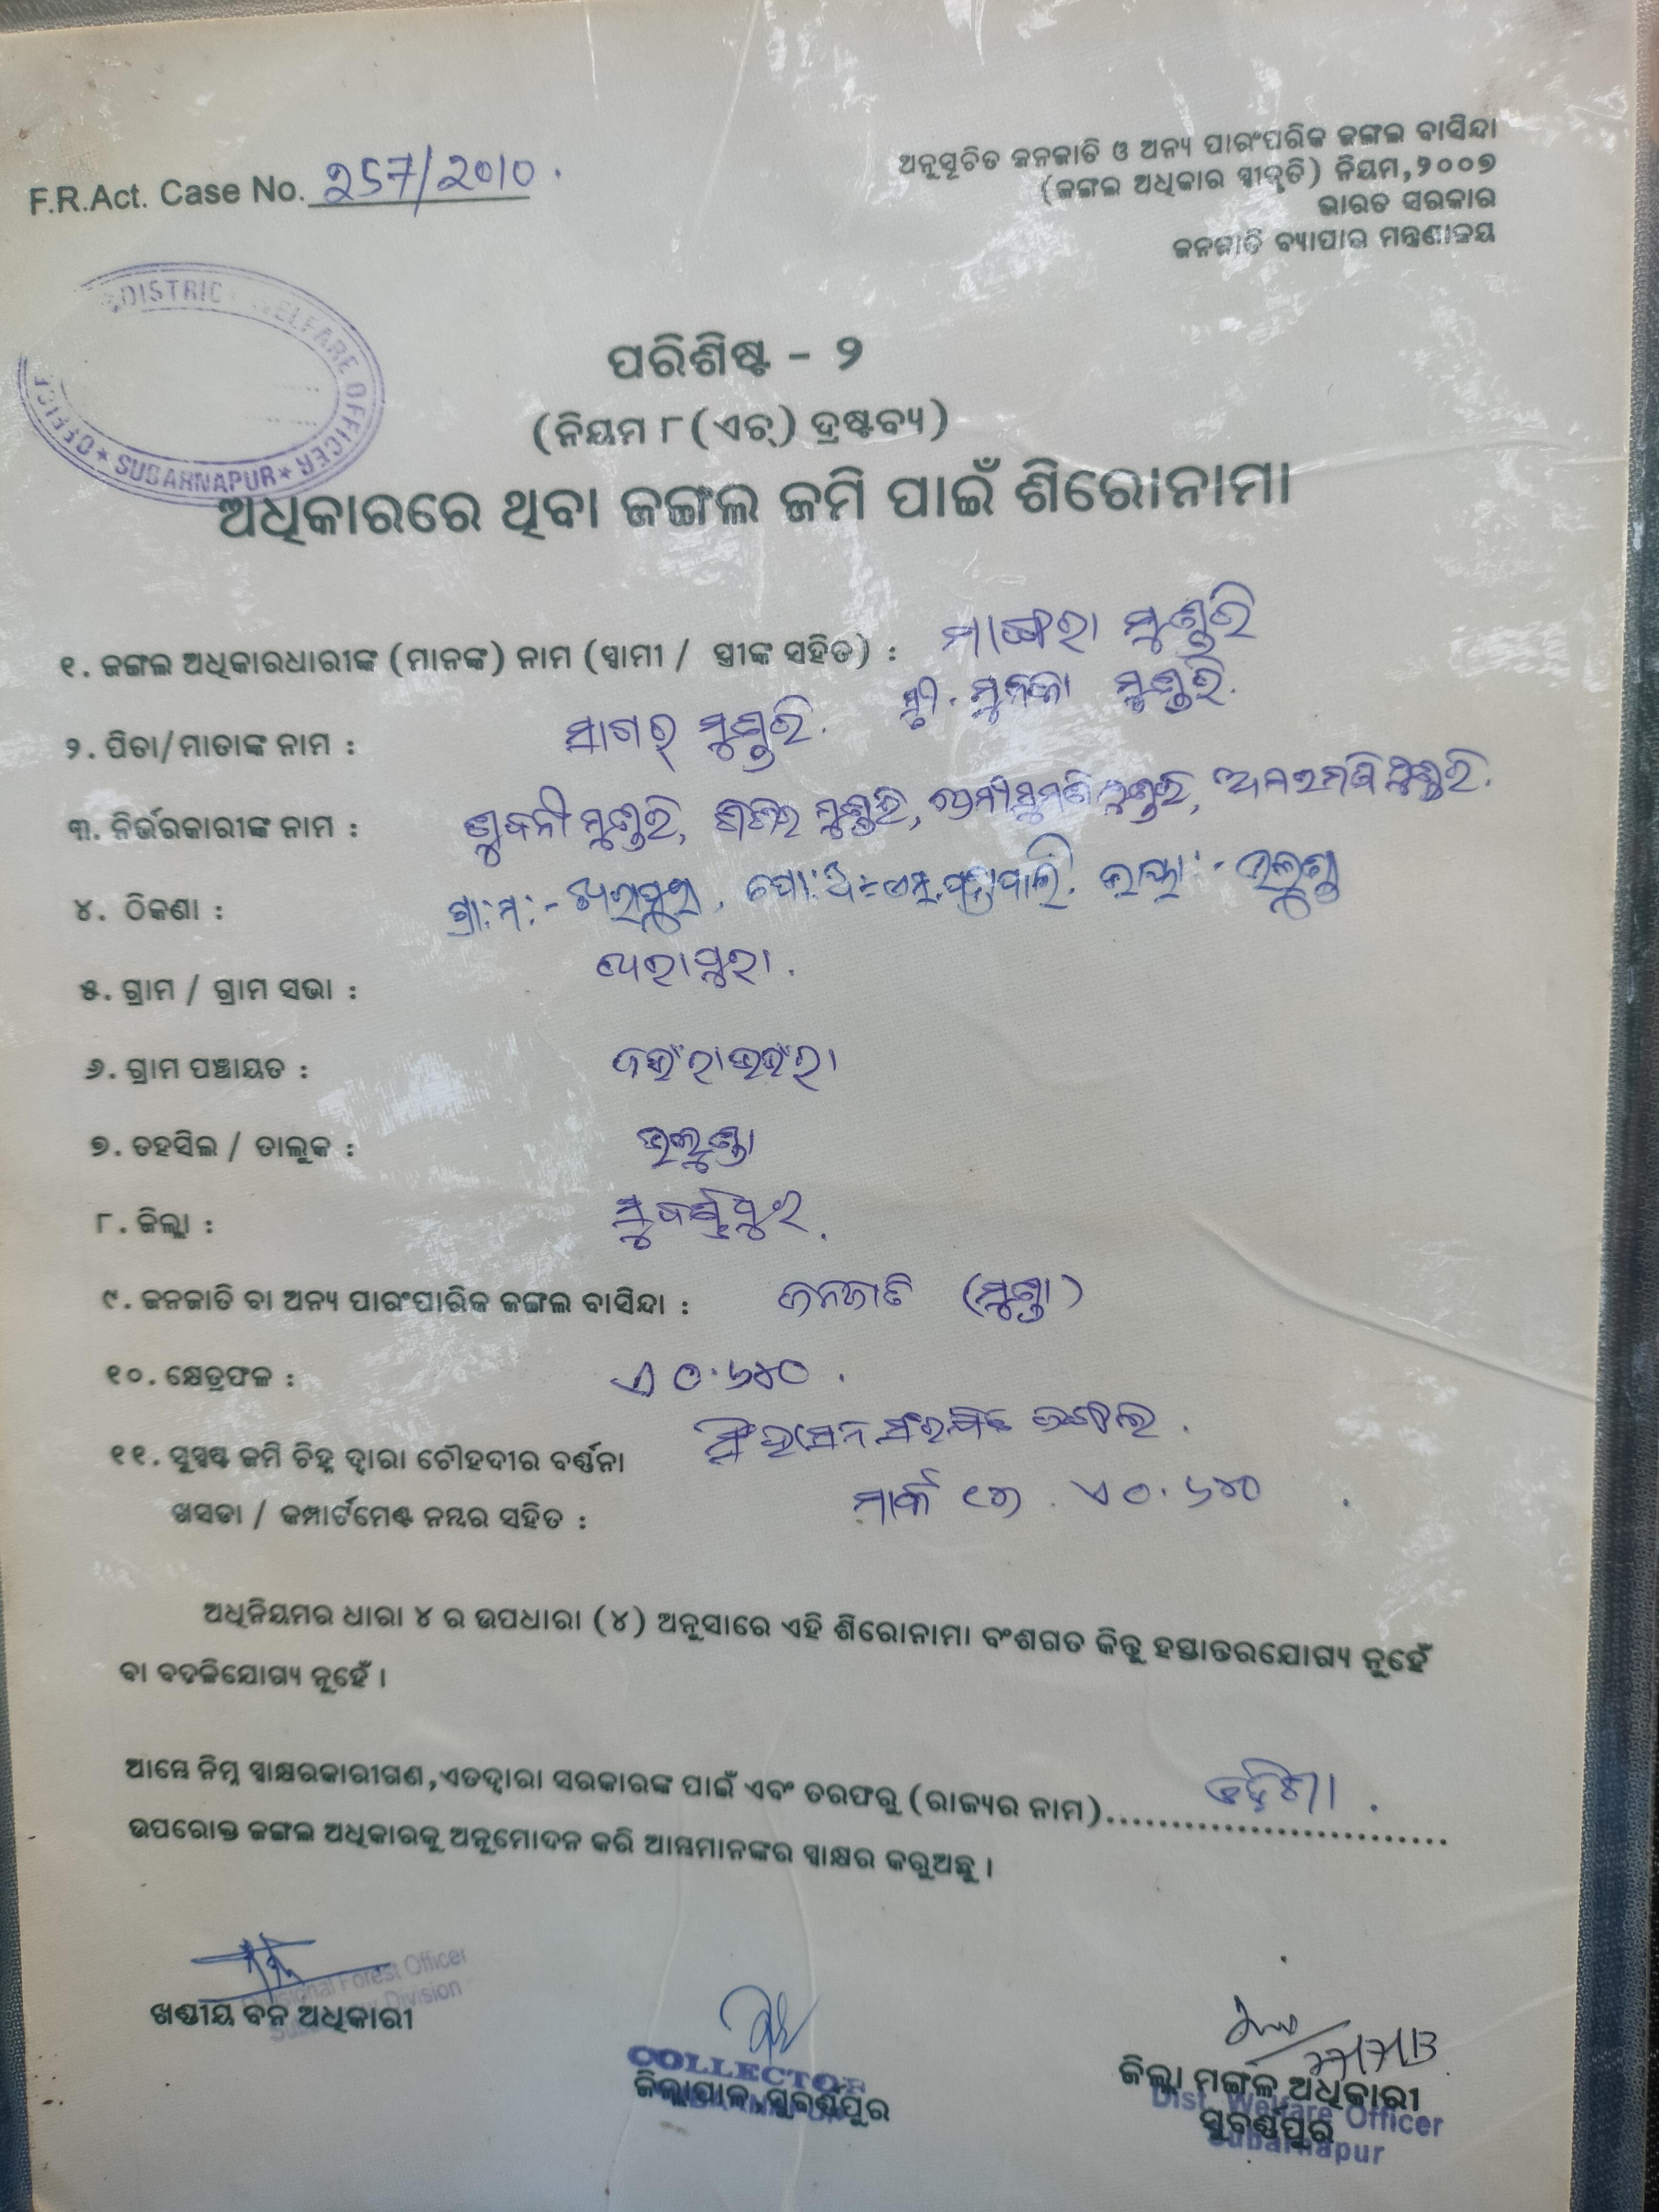 ଅନୁସୂଚିତ ଜନଜାତି ଓ ଅନ୍ୟ ପାରଂପରିକ ଜଙ୍ଗଲ ବାସିନ୍ଦା
(ଜଙ୍ଗଲ ଅଧିକାର ସ୍ୱୀକୃତି) ନିୟମ,୨୦୦୭
ଭାରତ ସରକାର
ଜନଜାତି ବ୍ୟାପାର ମନ୍ତ୍ରଣାଳୟ
F.R.Act. Case No. 257/2010.
DISTRICT WELFARE OFFICER
OFFICE * SUBARNAPUR *
ପରିଶିଷ୍ଟ - ୨
(ନିୟମ ୮(ଏଚ୍) ଦ୍ରଷ୍ଟବ୍ୟ)
ଅଧିକାରରେ ଥିବା ଜଙ୍ଗଲ ଜମି ପାଇଁ ଶିରୋନାମା
୧. ଜଙ୍ଗଲ ଅଧିକାରଧାରୀଙ୍କ (ମାନଙ୍କ) ନାମ (ସ୍ୱାମୀ / ସ୍ତ୍ରୀଙ୍କ ସହିତ) : ମୁଣ୍ଡାରି
ସ୍ତ୍ରୀ. ମୁଣ୍ଡାରି.
୨. ପିତା/ମାତାଙ୍କ ନାମ : ସାଗର୍ ମୁଣ୍ଡାରି.
୩. ନିର୍ଭରକାରୀଙ୍କ ନାମ : ମୁଣ୍ଡାରି, ମୁଣ୍ଡାରି,
୪. ଠିକଣା : ଗ୍ରା:ମ:- ଖରାମୁରା, ପୋ:ଅ:-
୫. ଗ୍ରାମ / ଗ୍ରାମ ସଭା : ଖରାମୁରା.
୬. ଗ୍ରାମ ପଞ୍ଚାୟତ :
୭. ତହସିଲ / ତାଲୁକ : ଉଲୁଣ୍ଡା
୮. ଜିଲ୍ଲା : ସୁବର୍ଣ୍ଣପୁର.
୯. ଜନଜାତି ବା ଅନ୍ୟ ପାରଂପାରିକ ଜଙ୍ଗଲ ବାସିନ୍ଦା : ଜନଜାତି (ମୁଣ୍ଡା)
୧୦. କ୍ଷେତ୍ରଫଳ : ଏ ୦.୬୪୦.
୧୧. ସୁସ୍ପଷ୍ଟ ଜମି ଚିହ୍ନ ଦ୍ୱାରା ଚୌହଦୀର ବର୍ଣ୍ଣନା ସଂରକ୍ଷିତ ଜଙ୍ଗଲ.
ଖସଡା / କମ୍ପାର୍ଟମେଣ୍ଟ ନମ୍ବର ସହିତ : ମାର୍କ ଏ ୦.୬୪୦.
ଅଧିନିୟମର ଧାରା ୪ ର ଉପଧାରା (୪) ଅନୁସାରେ ଏହି ଶିରୋନାମା ବଂଶଗତ କିନ୍ତୁ ହସ୍ତାନ୍ତରଯୋଗ୍ୟ ନୁହେଁ
ବା ବଦଳିଯୋଗ୍ୟ ନୁହେଁ ।
ଆମ୍ଭେ ନିମ୍ନ ସ୍ୱାକ୍ଷରକାରୀଗଣ,ଏତଦ୍ୱାରା ସରକାରଙ୍କ ପାଇଁ ଏବଂ ତରଫରୁ (ରାଜ୍ୟର ନାମ).......................... ଓଡ଼ିଶା.
ଉପରୋକ୍ତ ଜଙ୍ଗଲ ଅଧିକାରକୁ ଅନୁମୋଦନ କରି ଆମ୍ଭମାନଙ୍କର ସ୍ୱାକ୍ଷର କରୁଅଛୁ ।
Divisional Forest Officer
Division
ଖଣ୍ଡୀୟ ବନ ଅଧିକାରୀ
COLLECTOR
ଜିଲ୍ଲାପାଳ,ସୁବର୍ଣ୍ଣପୁର
27/7/13
ଜିଲ୍ଲା ମଙ୍ଗଳ ଅଧିକାରୀ
Dist. Welfare Officer
ସୁବର୍ଣ୍ଣପୁର
Subarnapur